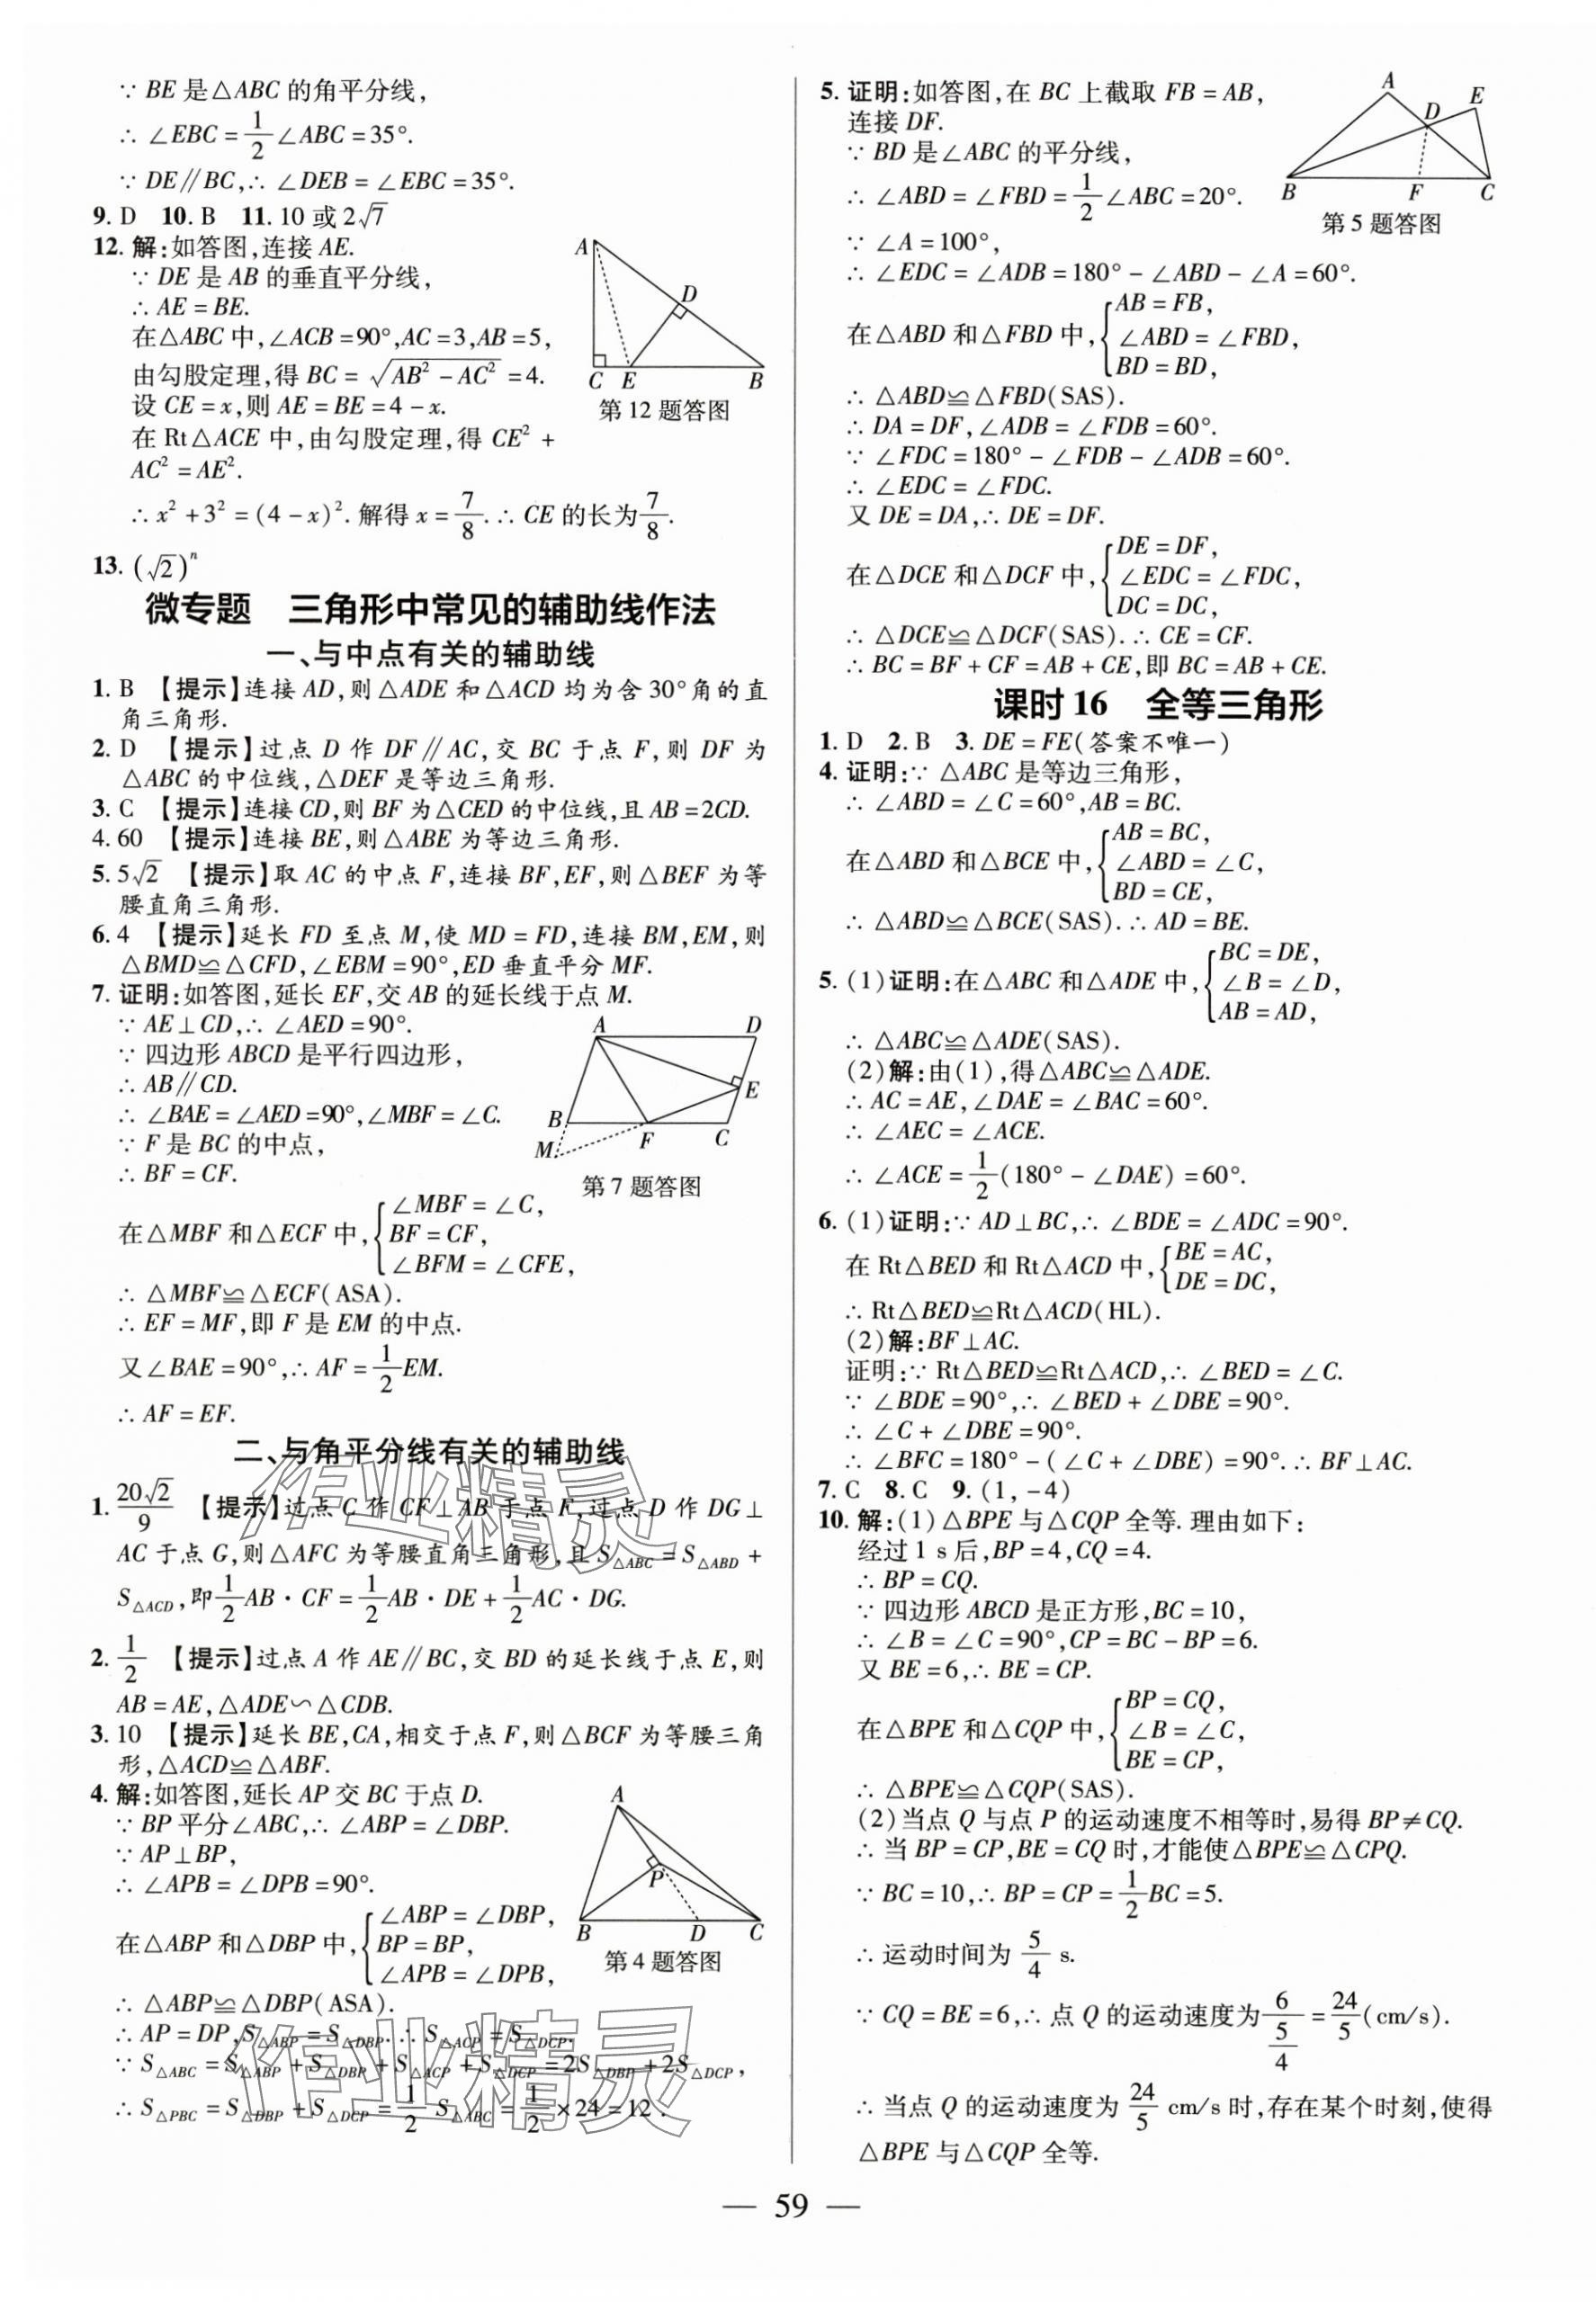 ∵ BE是△ABC的角平分线，
∴ ∠EBC = 1/2 ∠ABC = 35°.
∵ DE∥BC,∴ ∠DEB = ∠EBC = 35°.
9. D 10. B 11. 10 或 2√7
12. 解:如答图,连接 AE.
∵ DE 是 AB 的垂直平分线,
∴ AE = BE.
在△ABC 中,∠ACB = 90°,AC = 3,AB = 5,
由勾股定理,得 BC = √(AB² − AC²) = 4.
设 CE = x,则 AE = BE = 4 − x.
在 Rt△ACE 中,由勾股定理,得 CE² +
AC² = AE².
∴ x² + 3² = (4 − x)². 解得 x = 7/8. ∴ CE 的长为 7/8.
A
D
C E B
第 12 题答图
13. (√2)ⁿ
微专题 三角形中常见的辅助线作法
一、与中点有关的辅助线
1. B 【提示】连接 AD,则△ADE 和△ACD 均为含 30°角的直
角三角形.
2. D 【提示】过点 D 作 DF∥AC,交 BC 于点 F,则 DF 为
△ABC 的中位线,△DEF 是等边三角形.
3. C 【提示】连接 CD,则 BF 为△CED 的中位线,且 AB = 2CD.
4. 60 【提示】连接 BE,则△ABE 为等边三角形.
5. 5√2 【提示】取 AC 的中点 F,连接 BF,EF,则△BEF 为等
腰直角三角形.
6. 4 【提示】延长 FD 至点 M,使 MD = FD,连接 BM,EM,则
△BMD≌△CFD,∠EBM = 90°,ED 垂直平分 MF.
7. 证明:如答图,延长 EF,交 AB 的延长线于点 M.
∵ AE⊥CD,∴ ∠AED = 90°.
∵ 四边形 ABCD 是平行四边形,
∴ AB∥CD.
∴ ∠BAE = ∠AED = 90°,∠MBF = ∠C.
∵ F 是 BC 的中点,
∴ BF = CF.
在△MBF 和△ECF 中, { ∠MBF = ∠C,
BF = CF,
∠BFM = ∠CFE,
∴ △MBF≌△ECF(ASA).
∴ EF = MF,即 F 是 EM 的中点.
又∠BAE = 90°,∴ AF = 1/2 EM.
∴ AF = EF.
A D
E
B F C
M
第 7 题答图
二、与角平分线有关的辅助线
1. 20√2/9 【提示】过点 C 作 CF⊥AB 于点 F,过点 D 作 DG⊥
AC 于点 G,则△AFC 为等腰直角三角形,且 S△ABC = S△ABD +
S△ACD,即 1/2 AB · CF = 1/2 AB · DE + 1/2 AC · DG.
2. 1/2 【提示】过点 A 作 AE∥BC,交 BD 的延长线于点 E,则
AB = AE,△ADE∽△CDB.
3. 10 【提示】延长 BE,CA,相交于点 F,则△BCF 为等腰三角
形,△ACD≌△ABF.
4. 解:如答图,延长 AP 交 BC 于点 D.
∵ BP 平分∠ABC,∴ ∠ABP = ∠DBP.
∵ AP⊥BP,
∴ ∠APB = ∠DPB = 90°.
在△ABP 和△DBP 中, { ∠ABP = ∠DBP,
BP = BP,
∠APB = ∠DPB,
∴ △ABP≌△DBP(ASA).
∴ AP = DP,S△ABP = S△DBP. ∴ S△ACP = S△DCP.
∵ S△ABC = S△ABP + S△DBP + S△ACP + S△DCP = 2S△DBP + 2S△DCP,
∴ S△PBC = S△DBP + S△DCP = 1/2 S△ABC = 1/2 × 24 = 12.
A
P
B D C
第 4 题答图
5. 证明:如答图,在 BC 上截取 FB = AB,
连接 DF.
∵ BD 是∠ABC 的平分线,
∴ ∠ABD = ∠FBD = 1/2 ∠ABC = 20°.
∵ ∠A = 100°,
∴ ∠EDC = ∠ADB = 180° − ∠ABD − ∠A = 60°.
在△ABD 和△FBD 中, { AB = FB,
∠ABD = ∠FBD,
BD = BD,
∴ △ABD≌△FBD(SAS).
∴ DA = DF,∠ADB = ∠FDB = 60°.
∵ ∠FDC = 180° − ∠FDB − ∠ADB = 60°.
∴ ∠EDC = ∠FDC.
又 DE = DA,∴ DE = DF.
在△DCE 和△DCF 中, { DE = DF,
∠EDC = ∠FDC,
DC = DC,
∴ △DCE≌△DCF(SAS). ∴ CE = CF.
∴ BC = BF + CF = AB + CE,即 BC = AB + CE.
A
D E
B F C
第 5 题答图
课时 16 全等三角形
1. D 2. B 3. DE = FE(答案不唯一)
4. 证明:∵ △ABC 是等边三角形,
∴ ∠ABD = ∠C = 60°,AB = BC.
在△ABD 和△BCE 中, { AB = BC,
∠ABD = ∠C,
BD = CE,
∴ △ABD≌△BCE(SAS). ∴ AD = BE.
5. (1)证明:在△ABC 和△ADE 中, { BC = DE,
∠B = ∠D,
AB = AD,
∴ △ABC≌△ADE(SAS).
(2)解:由(1),得△ABC≌△ADE.
∴ AC = AE,∠DAE = ∠BAC = 60°.
∴ ∠AEC = ∠ACE.
∴ ∠ACE = 1/2 (180° − ∠DAE) = 60°.
6. (1)证明:∵ AD⊥BC,∴ ∠BDE = ∠ADC = 90°.
在 Rt△BED 和 Rt△ACD 中, { BE = AC,
DE = DC,
∴ Rt△BED≌Rt△ACD(HL).
(2)解:BF⊥AC.
证明:∵ Rt△BED≌Rt△ACD,∴ ∠BED = ∠C.
∵ ∠BDE = 90°,∴ ∠BED + ∠DBE = 90°.
∴ ∠C + ∠DBE = 90°.
∴ ∠BFC = 180° − (∠C + ∠DBE) = 90°. ∴ BF⊥AC.
7. C 8. C 9. (1, −4)
10. 解:(1)△BPE 与△CQP 全等. 理由如下:
经过 1 s 后,BP = 4,CQ = 4.
∴ BP = CQ.
∵ 四边形 ABCD 是正方形,BC = 10,
∴ ∠B = ∠C = 90°,CP = BC − BP = 6.
又 BE = 6,∴ BE = CP.
在△BPE 和△CQP 中, { BP = CQ,
∠B = ∠C,
BE = CP,
∴ △BPE≌△CQP(SAS).
(2)当点 Q 与点 P 的运动速度不相等时,易得 BP ≠ CQ.
∴ 当 BP = CP,BE = CQ 时,才能使△BPE≌△CPQ.
∵ BC = 10,∴ BP = CP = 1/2 BC = 5.
∴ 运动时间为 5/4 s.
∵ CQ = BE = 6,∴ 点 Q 的运动速度为 6/(5/4) = 24/5 (cm/s).
∴ 当点 Q 的运动速度为 24/5 cm/s 时,存在某个时刻,使得
△BPE 与△CQP 全等.
作业精灵
作业精灵
— 59 —